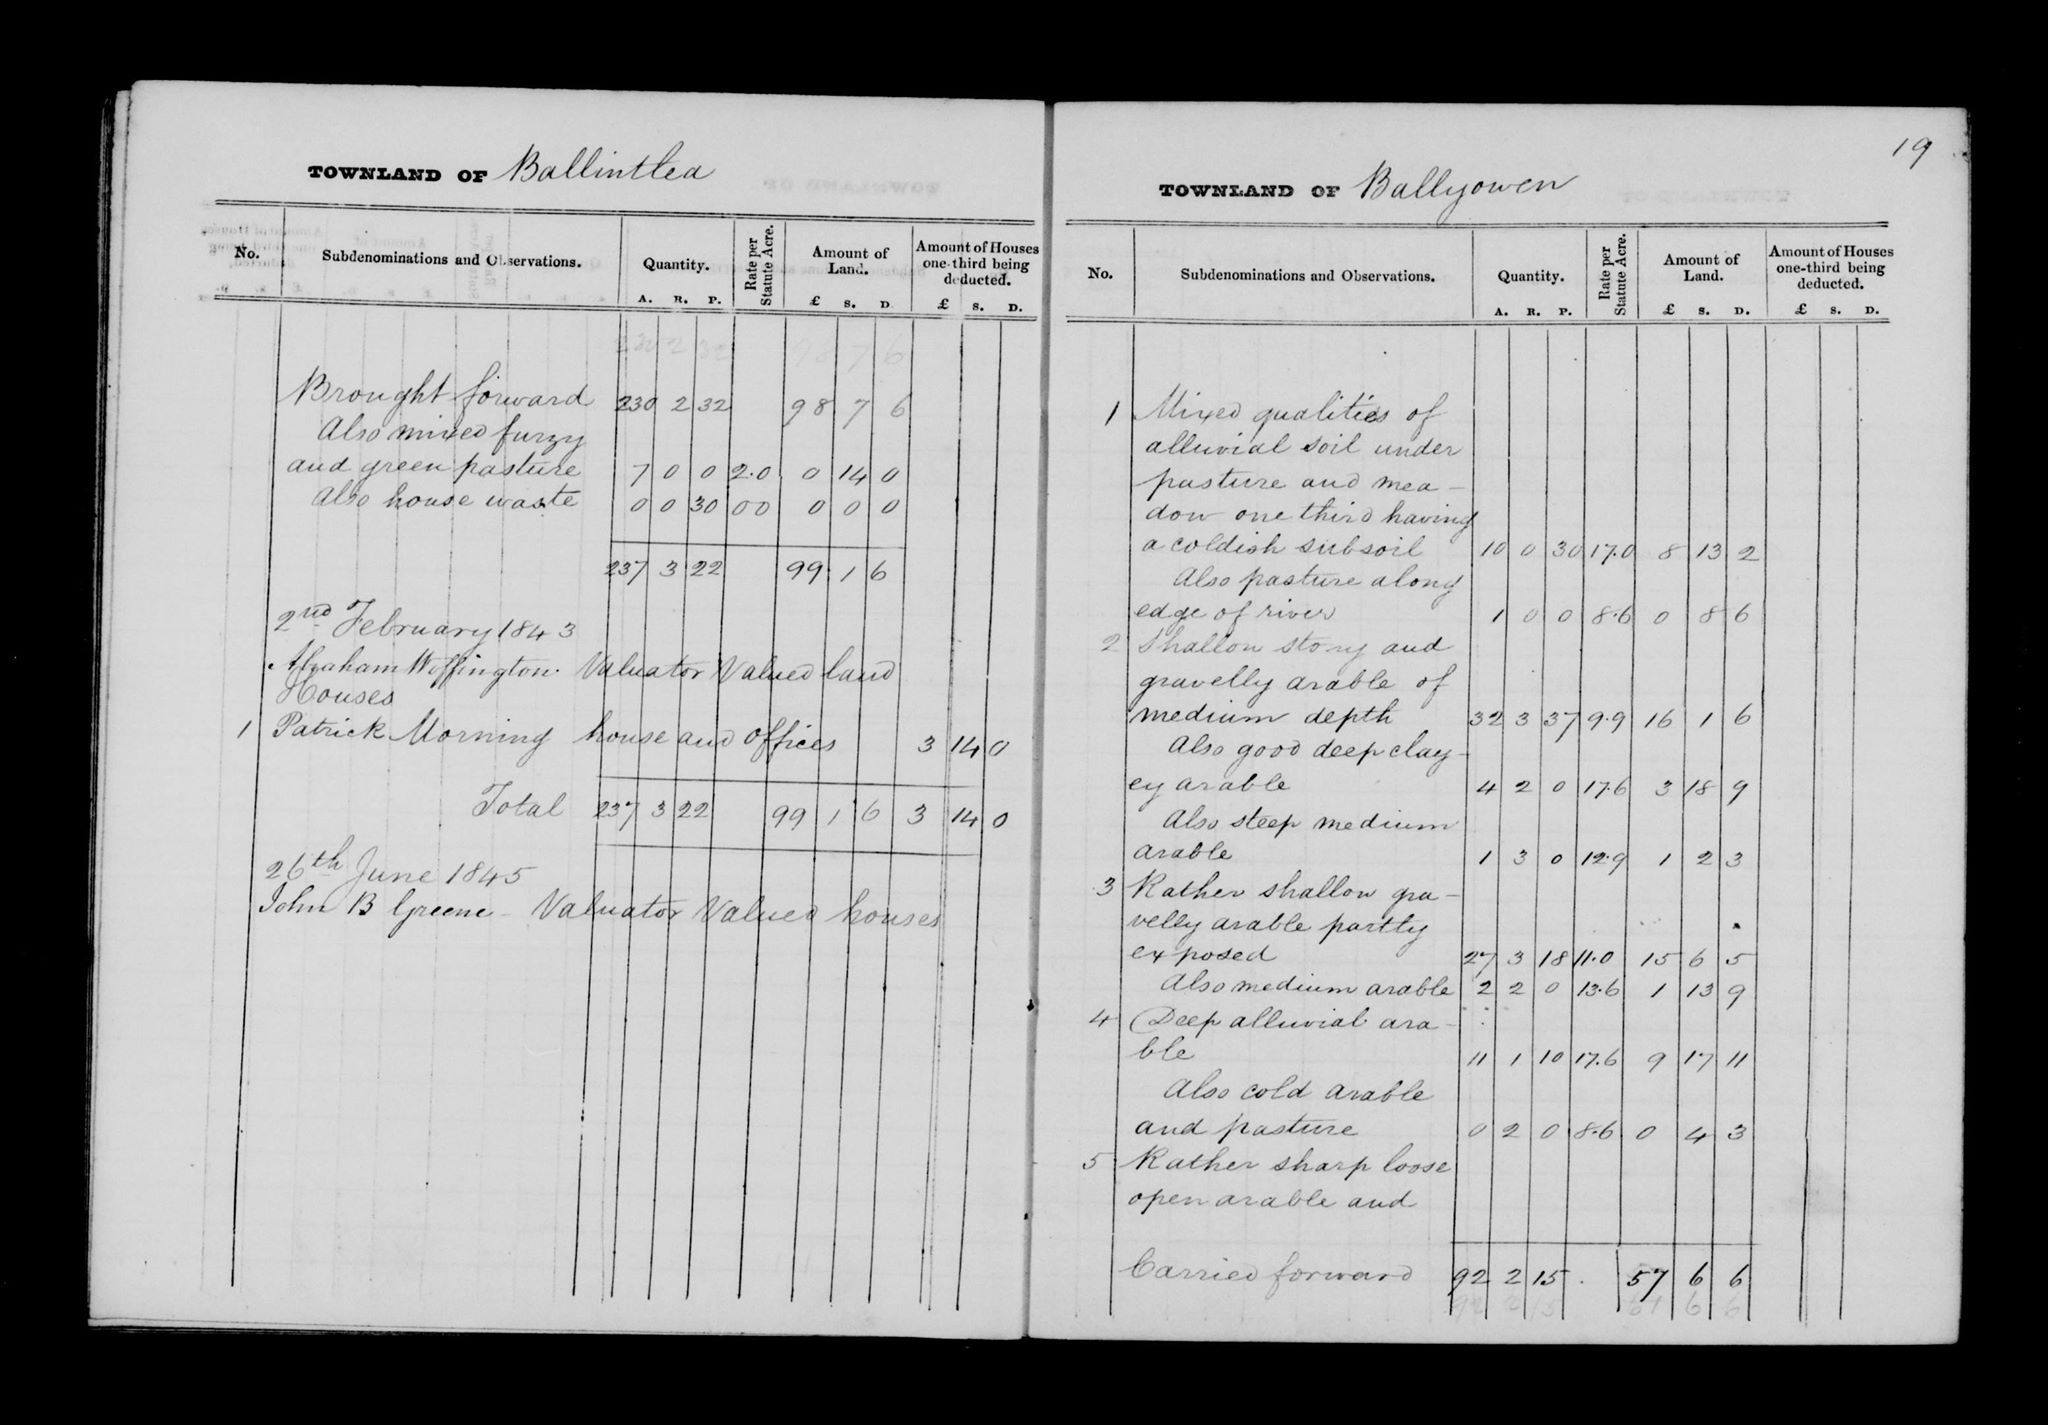 TOWNLAND OF Ballintlea
No. Subdenominations and Observations. Quantity. Rate per Statute Acre. Amount of Land. Amount of Houses one-third being deducted.
A. R. P. £ S. D. £ S. D.
230 2 32 98 7 6
Brought forward 230 2 32 98 7 6
Also mixed furzy
and green pasture 7 0 0 2.0 0 14 0
Also house waste 0 0 30 00 0 0 0
237 3 22 99 1 6
2nd February 1843
Abraham Woffington. Valuator Valued land
Houses
1 Patrick Morning house and offices 3 14 0
Total 237 3 22 99 1 6 3 14 0
26th June 1845
John B Greene - Valuator Valued houses
19
TOWNLAND OF Ballyowen
No. Subdenominations and Observations. Quantity. Rate per Statute Acre. Amount of Land. Amount of Houses one-third being deducted.
A. R. P. £ S. D. £ S. D.
1 Mixed qualities of
alluvial soil under
pasture and mea-
dow one third having
a coldish subsoil 10 0 30 17.0 8 13 2
Also pasture along
edge of river 1 0 0 8.6 0 8 6
2 Shallow stony and
gravelly arable of
medium depth 32 3 37 9.9 16 1 6
Also good deep clay-
ey arable 4 2 0 17.6 3 18 9
Also steep medium
arable 1 3 0 12.9 1 2 3
3 Rather shallow gra-
velly arable partly
exposed 27 3 18 11.0 15 6 5
Also medium arable 2 2 0 13.6 1 13 9
4 Deep alluvial ara-
ble 11 1 10 17.6 9 17 11
Also cold arable
and pasture 0 2 0 8.6 0 4 3
5 Rather sharp loose
open arable and
Carried forward 92 2 15 57 6 6
92 2 15 61 6 6